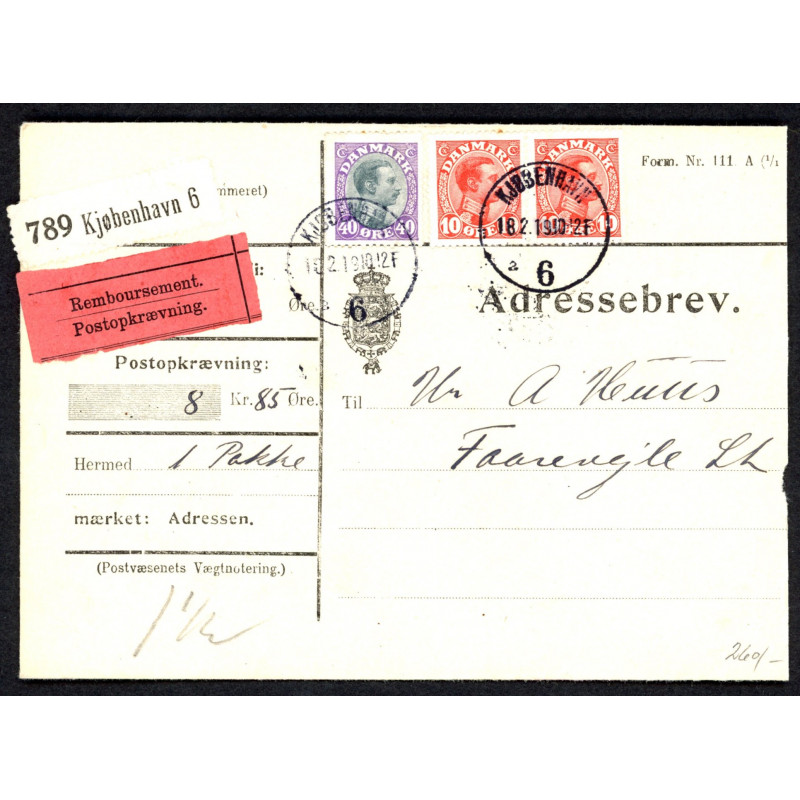 Form. Nr. 111 A (1/1
mmeret)
789 Kjøbenhavn 6
DANMARK
40 ØRE 40
DANMARK
10 ØRE
DANMARK
ØRE 10
KJØBENHAVN
18.2.19 10-12F
6
KJØBENHAVN
18.2.19 10-12F
a 6
Remboursement.
Postopkrævning.
i:
Øre.
Adressebrev.
Postopkrævning:
8 Kr. 85 Øre.
Til Hr A
Faarevejle St
Hermed 1 Pakke
mærket: Adressen.
(Postvæsenets Vægtnotering.)
260/-